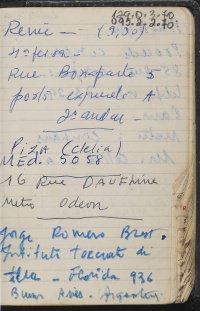 René — (9,30)
Rue Bonaparte 5
porte
2º andar —
PIZA (Clélia)
MED. 5058
16 Rue DAUPHINE
Metro Odeon
Jorge Romero Brest.
Instituto Torcuato di
Tella - Florida 936
Buenos Aires. Argentina